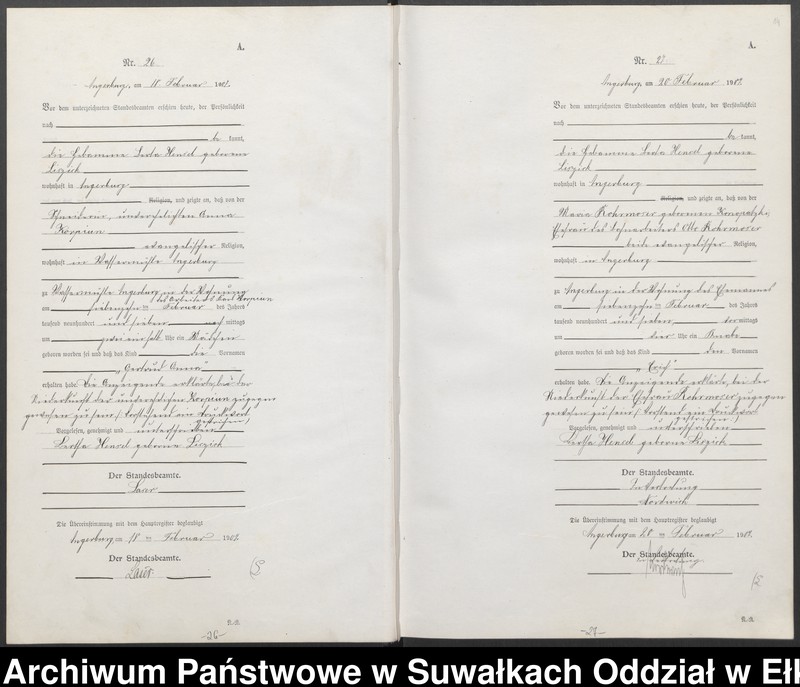 A.
Nr. 26
Angerburg, am 18 Februar 1907.
Vor dem unterzeichneten Standesbeamten erschien heute, der Persönlichkeit
nach
be kannt,
die Hebamme Hensel geborene
wohnhaft in Angerburg
Religion, und zeigte an, daß von der
Schneiderin, unverehelichten Anna
Korpiun
evangelischer Religion,
wohnhaft in Wassermühle Angerburg
zu Wassermühle Angerburg in der Wohnung
des Arbeiters Korpiun
am siebenzehn ten Februar des Jahres
tausend neunhundert und sieben nach mittags
um Uhr ein Mädchen
geboren worden sei und daß das Kind die Vornamen
„Gertrud Anna“
erhalten habe. Die Anzeigende erklärte, bei der
Niederkunft der unverehelichten Korpiun zugegen
gewesen zu sein. Vorstehend ein Druckwort
gestrichen.
Vorgelesen, genehmigt und unterschrieben
Hensel geborene
Der Standesbeamte.
Die Übereinstimmung mit dem Hauptregister beglaubigt
Angerburg am 18 ten Februar 1907.
Der Standesbeamte.
-26-
A.
Nr. 27
Angerburg, am 20 Februar 1907.
Vor dem unterzeichneten Standesbeamten erschien heute, der Persönlichkeit
nach
be kannt,
die Hebamme Hensel geborene
wohnhaft in Angerburg
Religion, und zeigte an, daß von der
Maria Rohrmoser geborenen
Ehefrau des Otto Rohrmoser
beide evangelischer Religion,
wohnhaft in Angerburg
zu Angerburg in der Wohnung des Ehemannes
am siebenzehn ten Februar des Jahres
tausend neunhundert und sieben vor mittags
um Uhr ein Knabe
geboren worden sei und daß das Kind den Vornamen
„Erich“
erhalten habe. Die Anzeigende erklärte, bei der
Niederkunft der Ehefrau Rohrmoser zugegen
gewesen zu sein. Vorstehend ein Druckwort
gestrichen.
Vorgelesen, genehmigt und unterschrieben
Hensel geborene
Der Standesbeamte.
In Vertretung
Die Übereinstimmung mit dem Hauptregister beglaubigt
Angerburg am 20 ten Februar 1907.
Der Standesbeamte.
In Vertretung
-27-
Archiwum Państwowe w Suwałkach Oddział w Eł